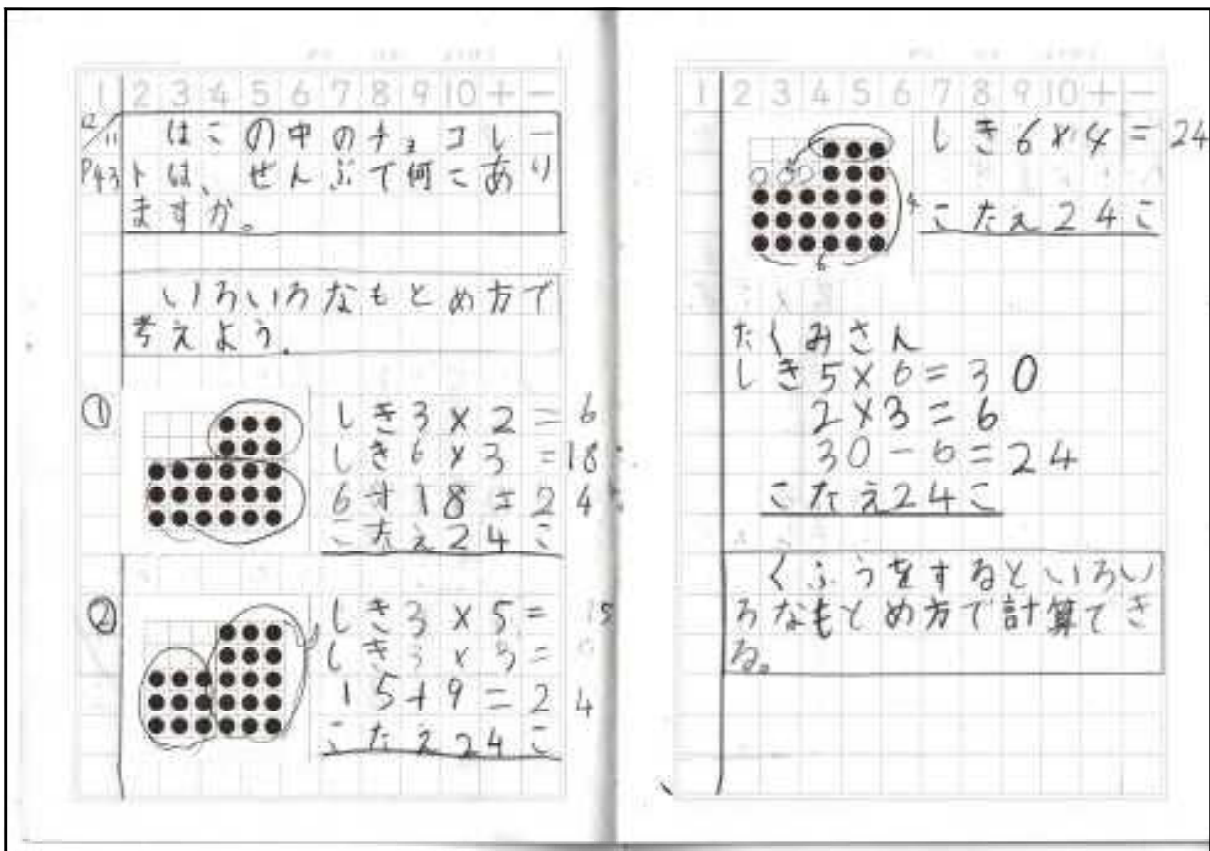 1 2 3 4 5 6 7 8 9 10 + −
12/11 はこの中のチョコレー
P43 トは、ぜんぶで何こあり
ますか。
いろいろなもとめ方で
考えよう。
①
しき3×2=6
しき6×3=18
6+18=24
こたえ24こ
②
しき3×5=15
しき3×3=9
15+9=24
こたえ24こ
1 2 3 4 5 6 7 8 9 10 + −
しき6×4=24
4
こたえ24こ
6
たくみさん
しき5×6=30
2×3=6
30−6=24
こたえ24こ
くふうをするといろい
ろなもとめ方で計算でき
る。